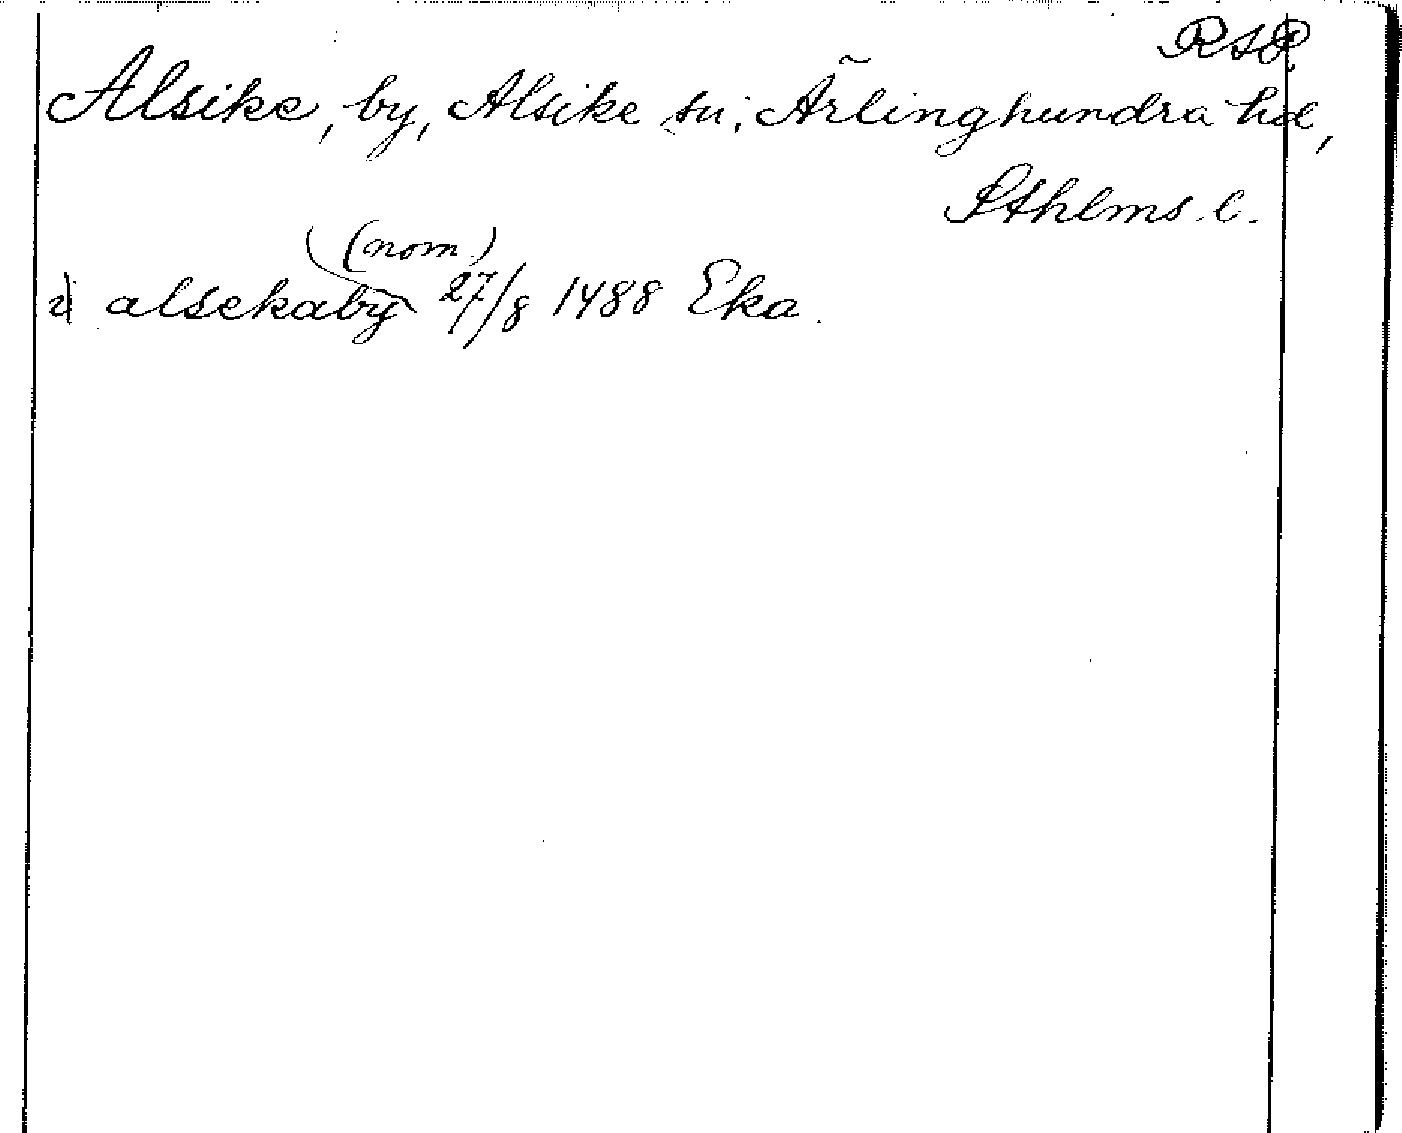 RSP.
Alsike, by, Alsike sn, Ärlinghundra hd,
Sthlms l.
(nom)
i) alsekaby 27/8 1488 Eka.